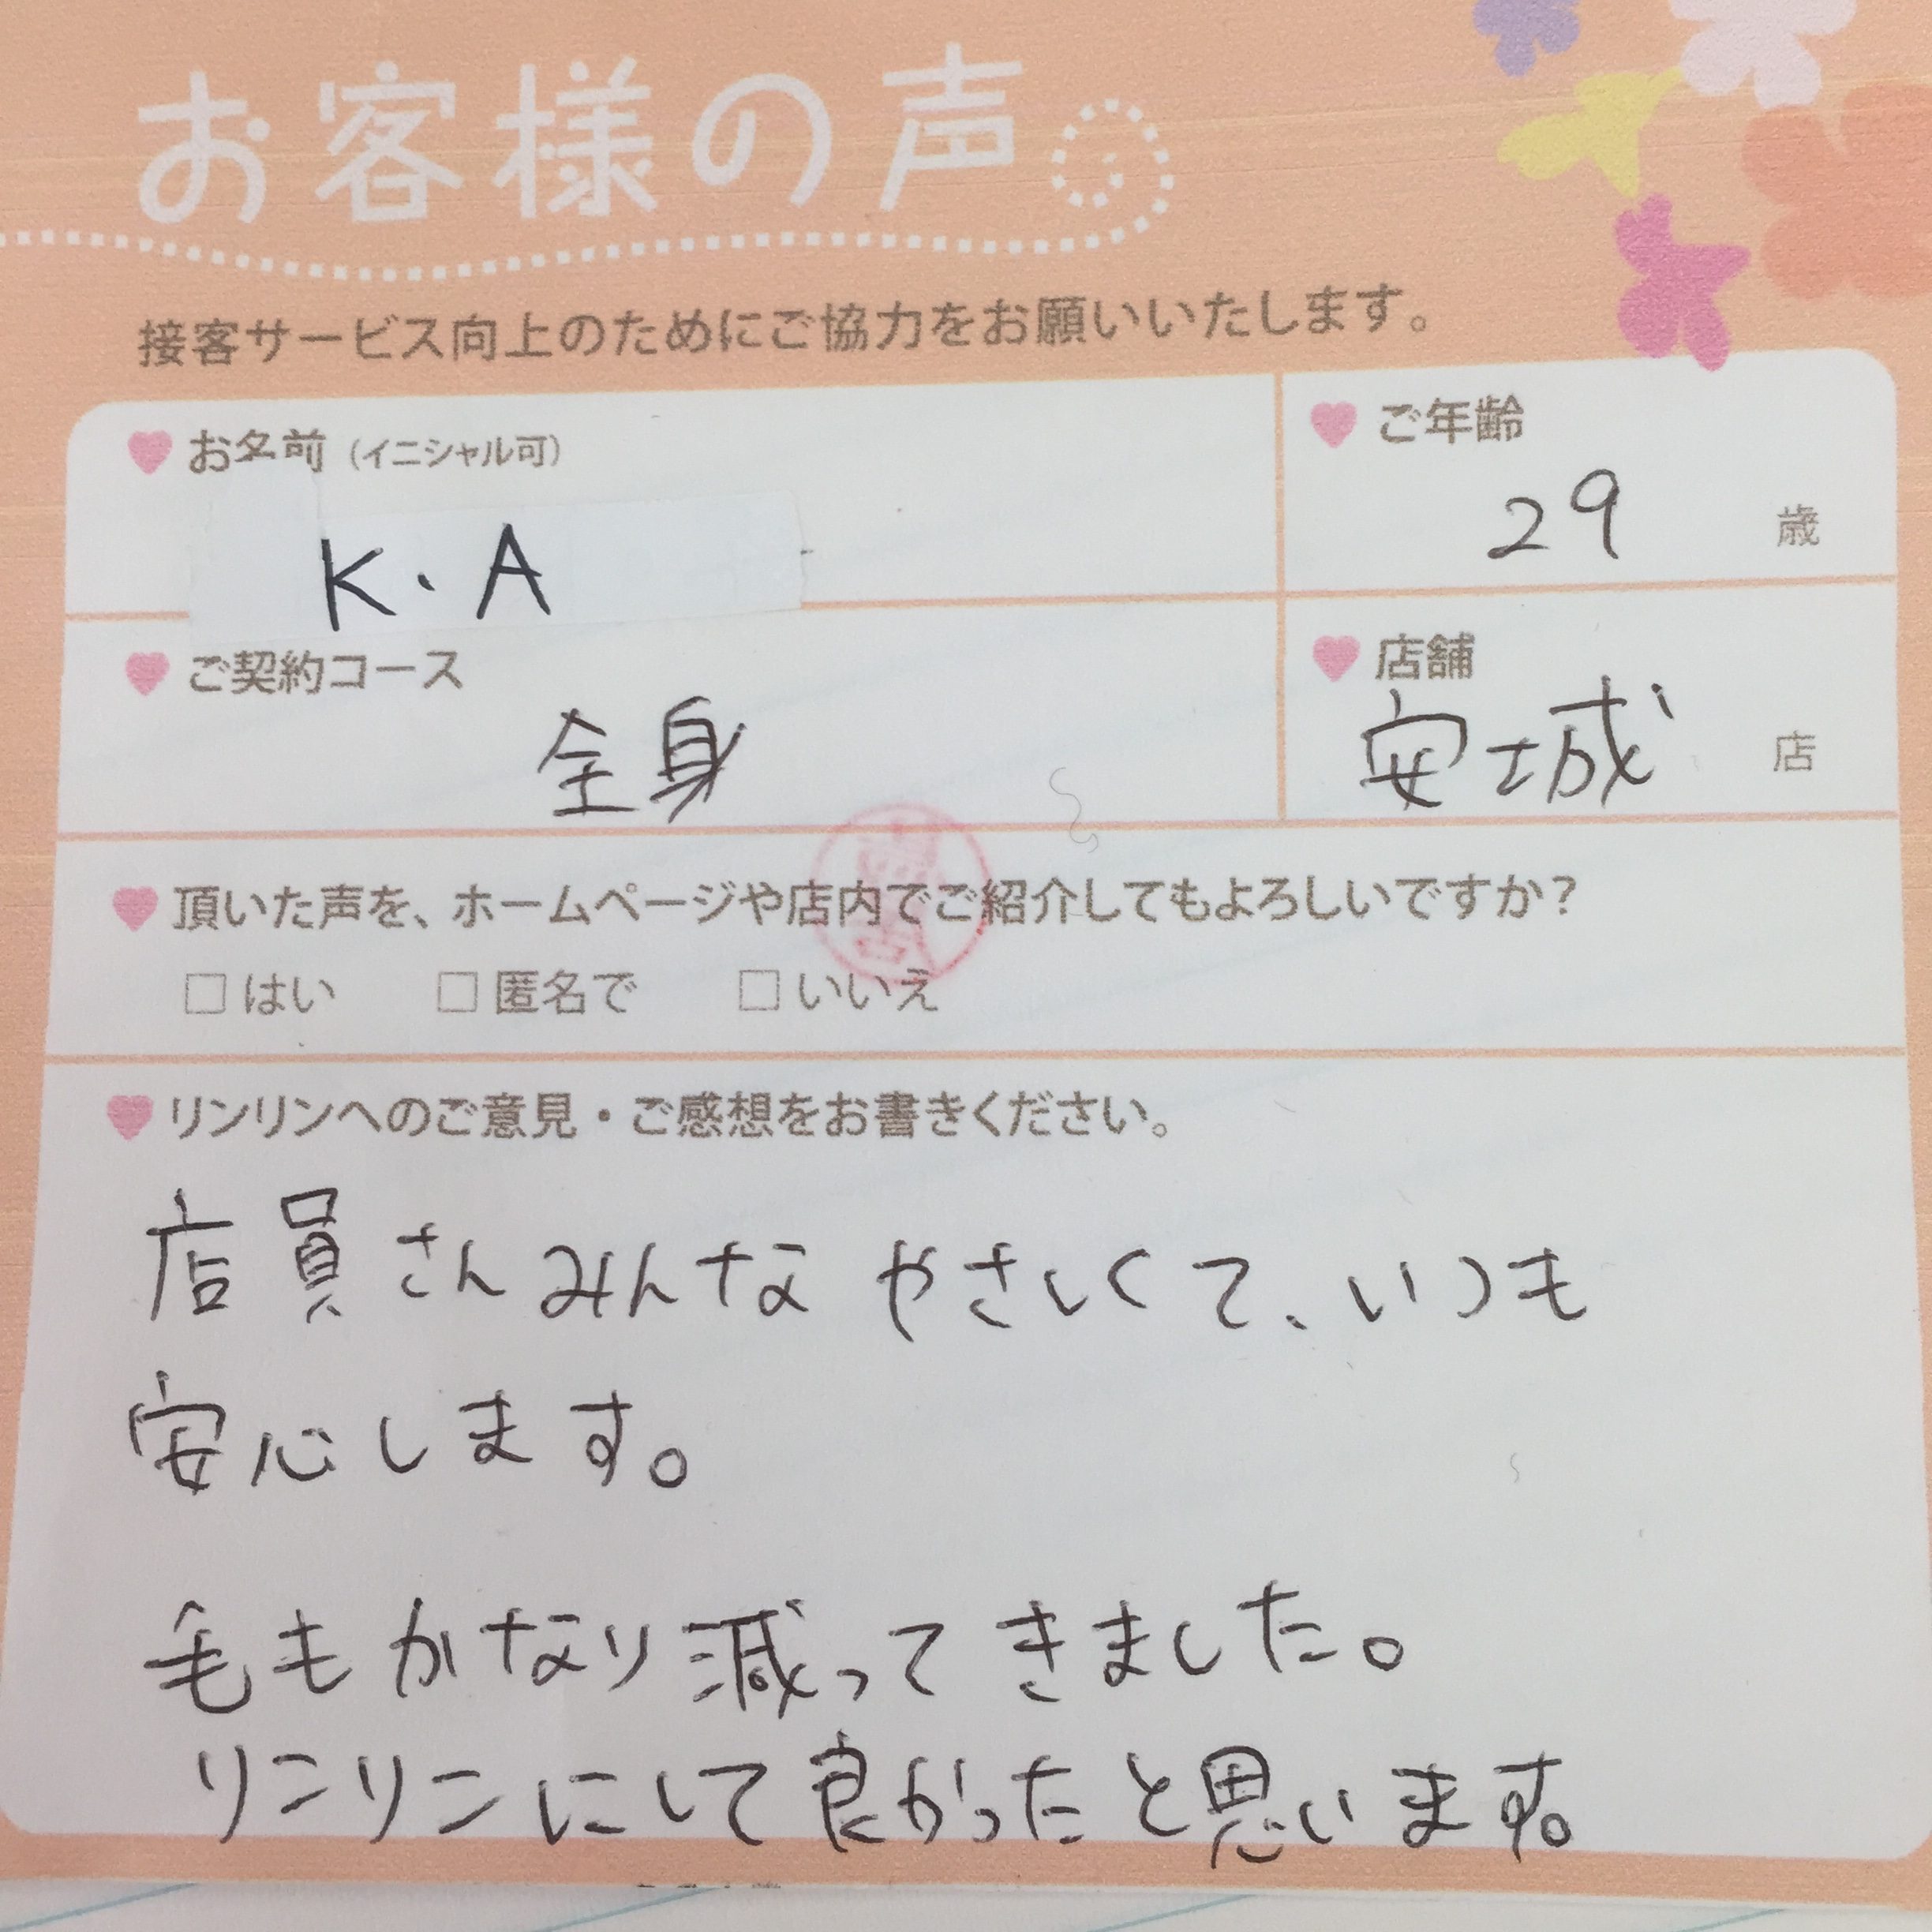 お客様の声。
接客サービス向上のためにご協力をお願いいたします。
お名前（イニシャル可）
K.A
ご年齢
29 歳
ご契約コース
全身
店舗
安城 店
頂いた声を、ホームページや店内でご紹介してもよろしいですか？
□はい □匿名で □いいえ
リンリンへのご意見・ご感想をお書きください。
店員さんみんなやさしくて、いつも
安心します。
毛もかなり減ってきました。
リンリンにして良かったと思います。